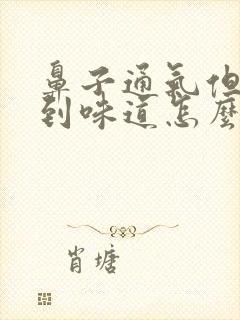 鼻子通氣但
到味道怎麼
肖塘